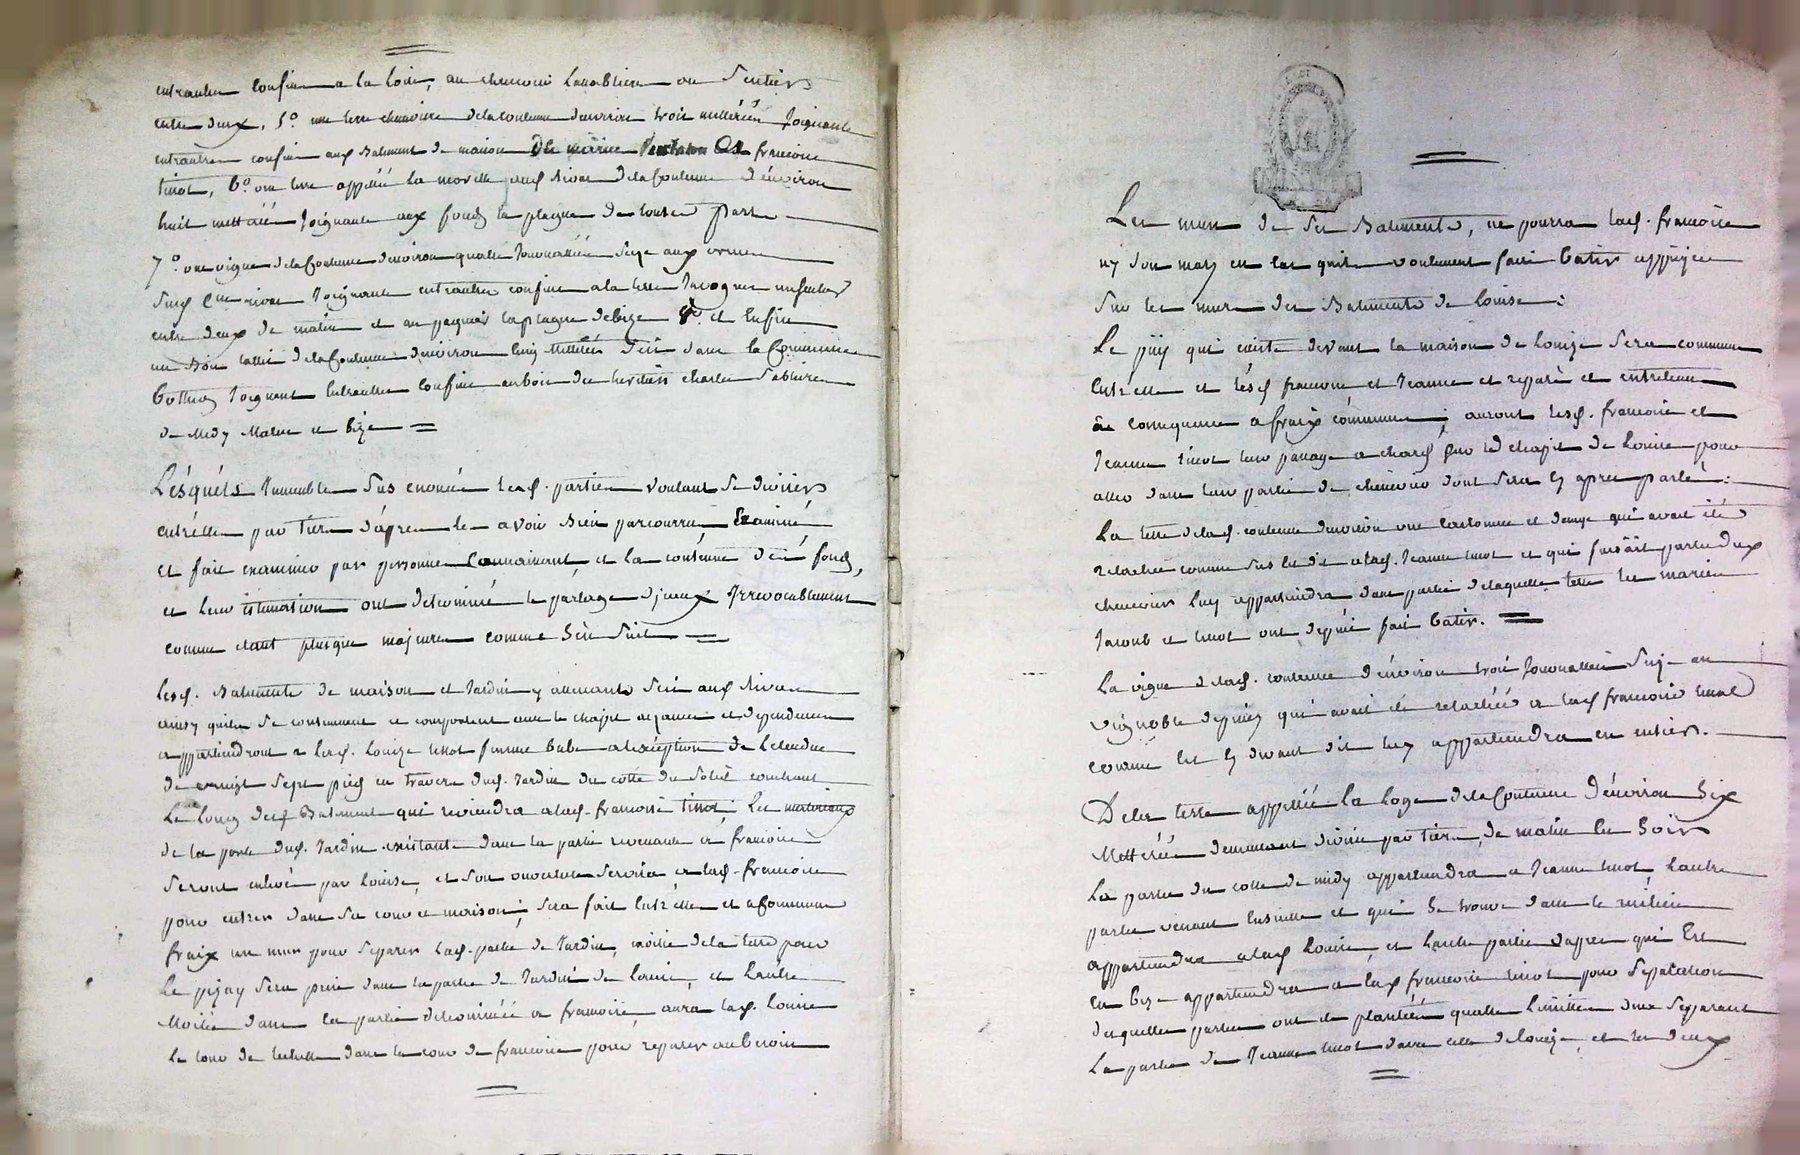 entrautre confin a la Loire, au chemin Lassablière ou Sentier
entre deux, 5.º une terre chenevière de la contenue d'environ trois mettérées Joignante
entrautres confins aux Batiment de maison de françoise
tinot, 6.º une terre appellée la morelle susd. rivas de la Contenue d'environ
huit mettérées Joignante aux fonds la plagne de toutes parts
7.º une vigne de la Contenue d'environ quatre Journallées size aux
susd. rivas Joignante entrautre confins a la terre
entre deux de matin et au la plagne de bize 8.º et Enfin
un Bois taillis de la Contenue d'environ cinq mettérées sis dans la Commune
Joignant Entrautre confins au bois des héritiers charles
de Midy Matin et bize
Lesquels Immeubles sus enoncés lesd. parties voulant se diviser
entr'elles par tiers d'après les avoir bien parcourru, Examiné
et fait examiner par personnes Connaissant, et la contenue desd. fonds,
et leur estimation ont determiné le partage d'iceux Irrevocablement
comme etant plusque majeures comme s'en suit
Lesd. Batiments de maison et Jardin y attenants sis aud. Rivas
ainsy quils se consistent et comportent avec le chapit aizances et dépendances
appartiendront a lad. Louize tinot femme a l'exception de L'etendue
de vingt sept pieds en travers dud. Jardin du cotté du Soleil couchant
Le Long desd. Batiment qui reviendra a lad. françoise tinot; Les materiaux
de la porte dud. Jardin existante dans la partie revenante a françoise
seront enlevés par Louise, et son ouverture servira a lad. françoise
pour entrer dans sa cour et maison; sera fait Entr'elles et a Communs
fraix un mur pour séparer lad. partie de Jardin, moitié de la terre pour
Le pizay sera prise dans la partie de Jardin de Louise, et L'autre
Moitié dans la partie déterminée a françoise, aura lad. Louise
Le tour de l'echelle dans la cour de françoise pour reparer au besoin
Les murs de ses Batiments, ne pourra lad. françoise
ny son mary en cas quils voulussent faire batir appuyer
sur les murs des Batiments de Louise:
Le puy qui existe devant la maison de Louize sera commun
Entr'elle et lesd. françoise et Jeanne et reparé et entretenu
en consequence a fraix communs; auront lesd. françoise et
Jeanne tinot leur passage a chard sous le chapit de Louise pour
aller dans leur partie de chenevier dont sera cy après parlé:
La terre de lad. contenue d'environ une cartonnée et demye qui avait été
relachée comme sus est dit a lad. Jeanne tinot et qui faisait partie du
chenevier luy appartiendra dans partie de laquelle terre les mariés
et tinot ont depuis fait batir.
La vigne de lad. contenue d'environ trois Journallées size au
vignoble qui avait été relachée a lad. françoise tinot
comme est cy devant dit luy appartiendra en entier.
De la terre appellée la Loge de la Contenue d'environ Six
Mettérées demeurant divisée par tiers, de matin en Soir
La partie du cotté de midy appartiendra a Jeanne tinot, L'autre
partie venant ensuitte et qui se trouve dans le millieu
appartiendra a lad. Louise, et L'autre partie d'après qui Est
en bize appartiendra a lad. françoise tinot pour separation
desquelles parties ont été plantées quatre Limittes deux separant
La partie de Jeanne tinot d'avec celle de Louize, et les deux